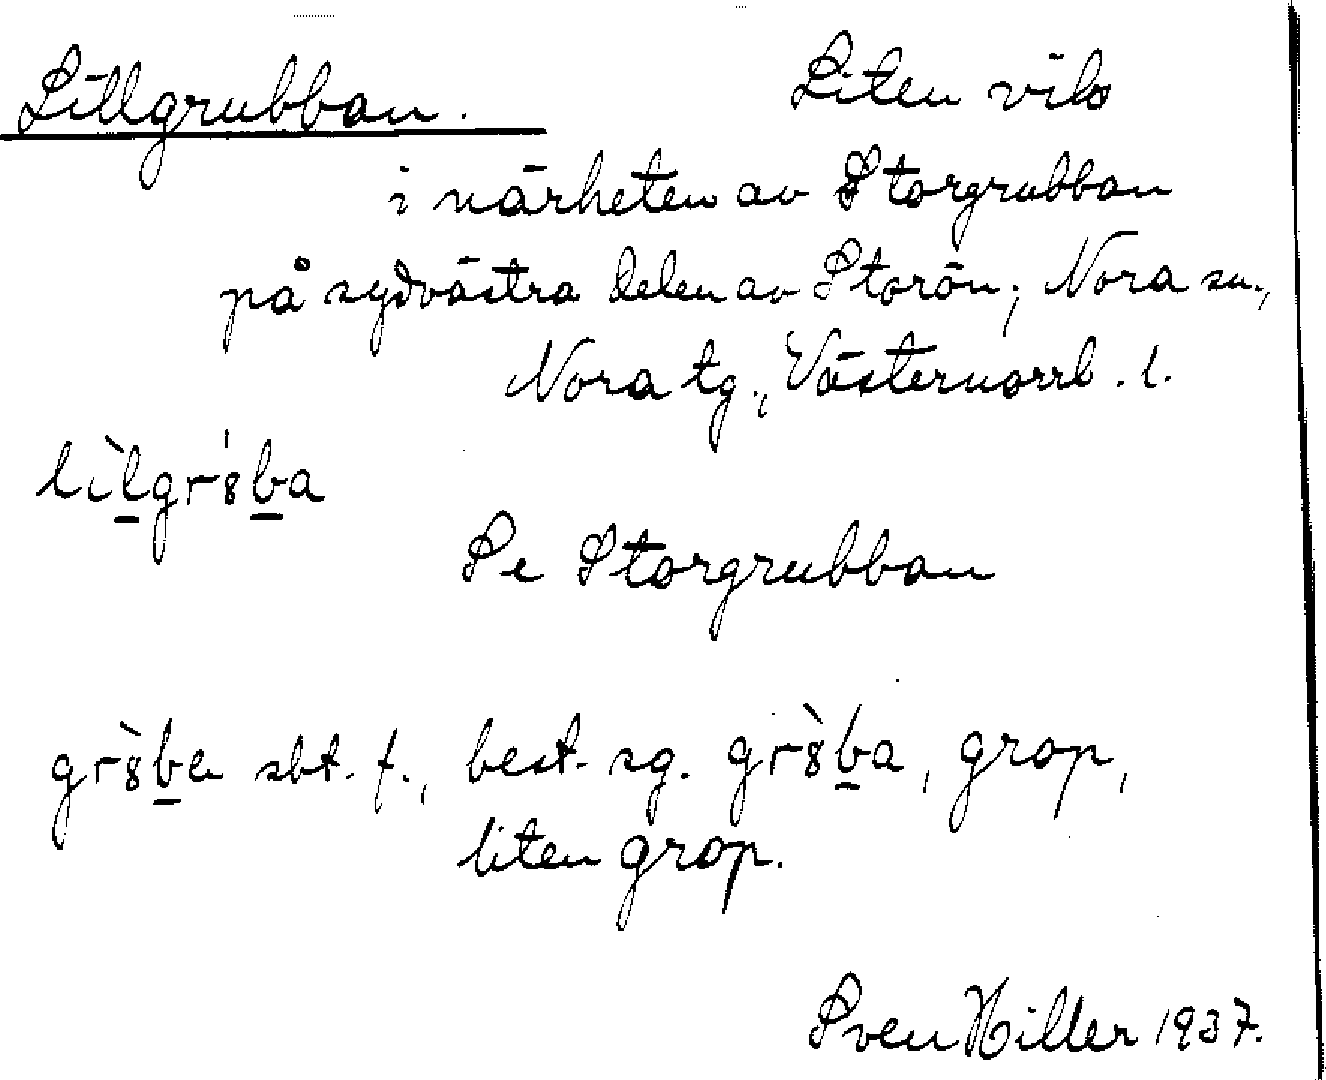 Lillgrubban. Liten vik
i närheten av Storgrubban
på sydvästra delen av Storön; Nora sn.,
Nora tg., Västernorrl. l.
lìlgr8́ba
Se Storgrubban
gr8̀ba sbt. f., best. sg. gr8̀ba, grop,
liten grop.
Sven Hiller 1937.